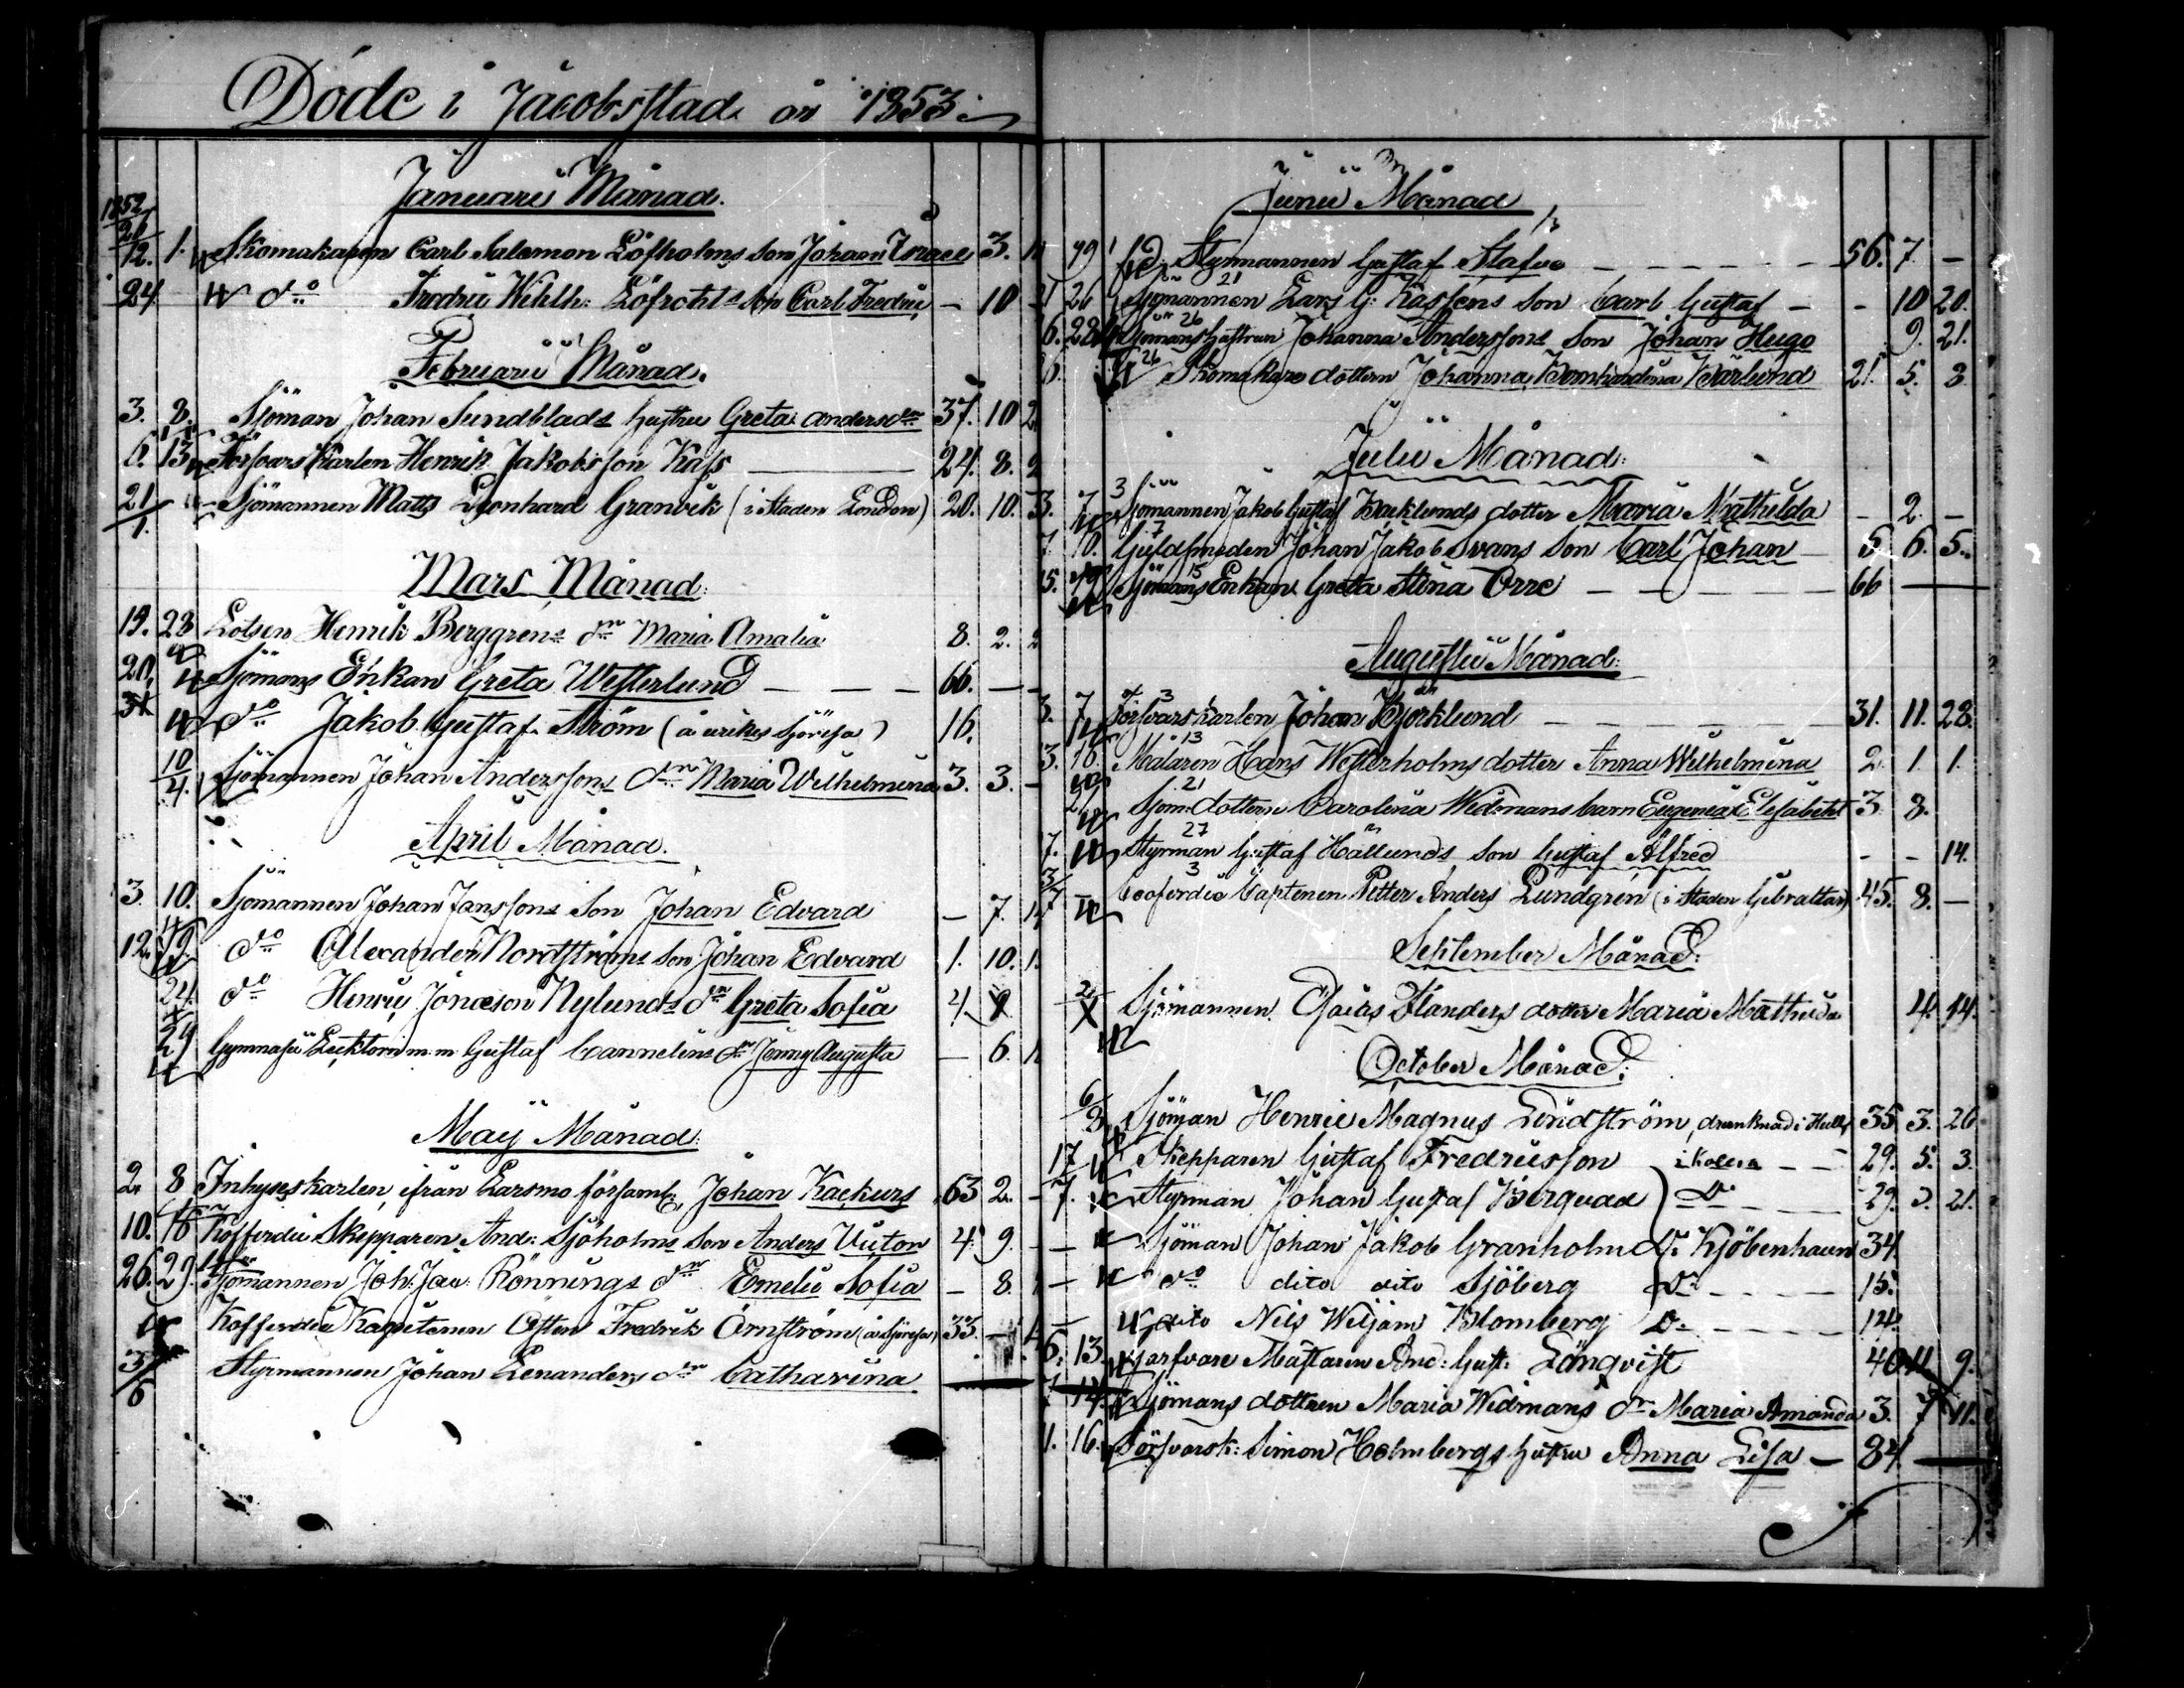 Döde i Jacobsstad år 1853
Januarii Månad.
1852
21/12. 1. Skomakaren Carl Salomon Löfholms Son Johan Israel 3.
24 do Fredric Wilh: Löfrohts Son Carl Fredric — 10
Februarii Månad.
3. 8. Sjöman Johan Sundblads hustru Greta Andersdr 37. 10
6. 13 Försvars Karlen Henrik Jakobsson Kass 24. 8.
21/1. Sjömannen Matts Leonhard Granvik (i Staden London) 20. 10.
Mars Månad.
19. 28 Lotsen Henrik Berggrens dr Maria Amalia 8. 2.
20. Sjömans Enkan Greta Westerlund — — — 66. —
31 do Jakob Gustaf Ström (å utrikes Sjöresa) 16.
10/4. Sjömannen Johan Anderssons dr Maria Wilhelmina 3. 3.
April Månad.
3. 10. Sjömannen Johan Janssons Son Johan Edvard — 7.
12. 19. do Alexander Nordströms Son Johan Edvard 1. 10.
24. do Henric Jonæson Nylunds dr Greta Sofia 4.
29 Gymnasii Lecktorn m.m. Gustaf Cannelins dr Jenny Augusta — 6.
Maij Månad.
2. 8 Inhyseskarlen ifrån Larsmo församl: Johan Kackurs 63 2.
10. 16 Kofferdii Skepparen And: Sjöholms Son Anders Victor 4. 9.
26. 29. Sjömannen Joh: Jac: Rönnings dr Emelie Sofia — 8.
Kofferdie Kapitenen Osten Fredrik Örnström (å Sjöresa) 33. —
3/6 Styrmannen Johan Lenanders dr Catharina
Junii Månad
19 Styrmannen Gustaf Stafve — — — 56. 7 —
21 26 Sjömannen Lars G: Kassens Son Carl Gustaf — — 10 20.
6. 28 Sjömans hustrun Johanna Anderssons Son Johan Hugo 9. 21.
Skomakare dottern Johanna Bernhardina Bärlund 21. 5. 3
Julii Månad.
3. 7 Sjömannen Jakob Gustaf Backlunds dotter Maria Mathilda — 2. —
7. 10. Guldsmeden Johan Jakob Svans Son Carl Johan — 5 6. 5.
15. 19 Sjömans Enkan Greta Stina Orre — — — 66
Augustii Månad.
3. 7 Försvarskarlen Johan Björklund — — — 31. 11. 28.
13. 16. Målaren Hans Wetterholms dotter Anna Wilhelmina 2. 1. 1.
21 Sjöm: dottern Carolina Widmans barn Eugenia Elisabeht 3 8.
27 Styrman Gustaf Hällunds Son Gustaf Alfred — — 14.
3/7 Cooferdie Captenen Petter Anders Lundgren (i Staden Gibraltar) 45. 8. —
September Månad.
Sjömannen Esaias Flanders dotter Maria Mathilda 4. 14.
October Månad.
6/3 Sjöman Henric Magnus Lindström, drunknad i Hull 35 3. 26
17 Skepparen Gustaf Fredricsson i Kolera — — 29. 5. 3.
7. Styrman Johan Gustaf Bergvad Do — — 29. 21.
— Sjöman Johan Jakob Granholm Do Kjöbenhavn 34.
— do dito dito Sjöberg Do — — — 15.
— dito Nils Wiljam Blomberg Do — — — 14.
6. 13. Garfvare Mästaren And: Gust: Lönqvist 40 11 9.
7 14. Sjömans dottren Maria Widmans dr Maria Amanda 3. 7 11.
11. 16. Försvarsk: Simon Holmbergs hustru Anna Lisa — 84